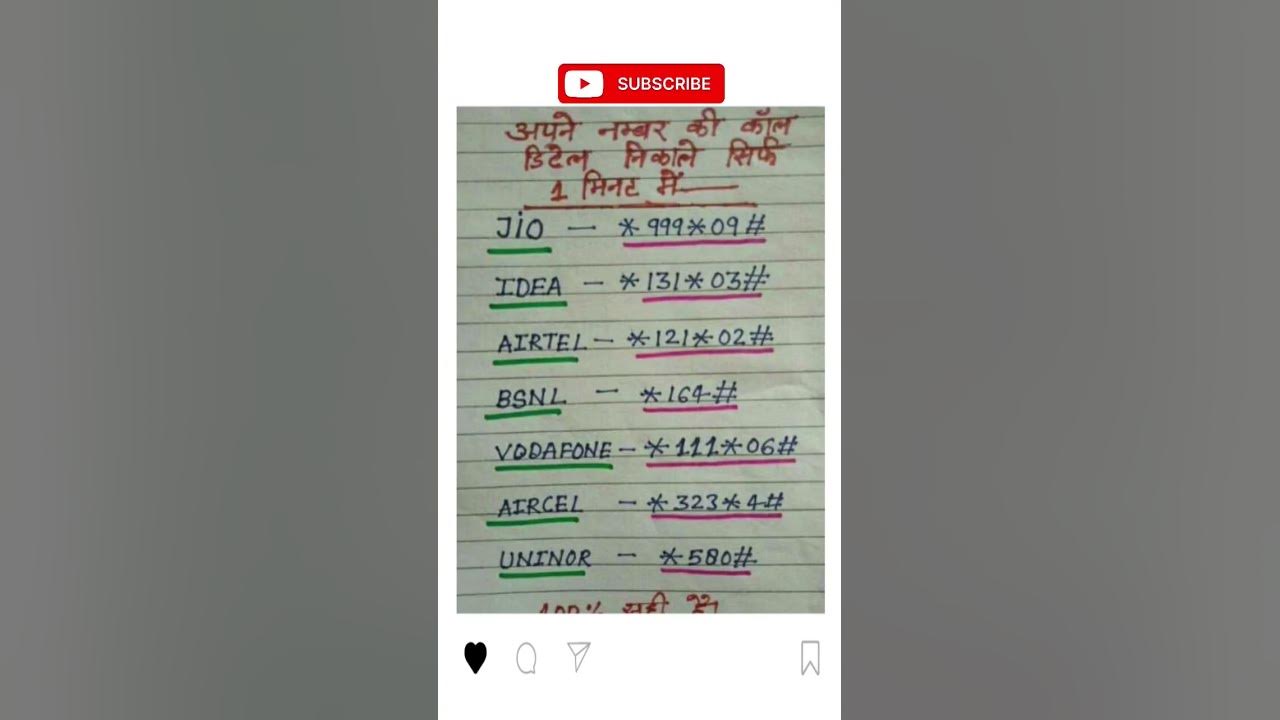 SUBSCRIBE
अपने नम्बर की कॉल
डिटेल निकाले सिर्फ
1 मिनट में——
JIO — *999*09#
IDEA — *131*03#
AIRTEL — *121*02#
BSNL — *164#
VODAFONE — *111*06#
AIRCEL — *323*4#
UNINOR — *580#
100% सही है